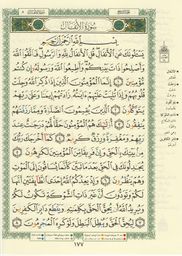 سُورَةُ الأَنفَالِ
بِسْمِ اللَّهِ الرَّحْمَٰنِ الرَّحِيمِ
يَسْـَٔلُونَكَ عَنِ الْأَنفَالِ قُلِ الْأَنفَالُ لِلَّهِ وَالرَّسُولِ فَاتَّقُوا اللَّهَ
وَأَصْلِحُوا ذَاتَ بَيْنِكُمْ وَأَطِيعُوا اللَّهَ وَرَسُولَهُ إِن كُنتُم
مُّؤْمِنِينَ ١ إِنَّمَا الْمُؤْمِنُونَ الَّذِينَ إِذَا ذُكِرَ اللَّهُ وَجِلَتْ
قُلُوبُهُمْ وَإِذَا تُلِيَتْ عَلَيْهِمْ ءَايَٰتُهُ زَادَتْهُمْ إِيمَٰنًا وَعَلَىٰ رَبِّهِمْ
يَتَوَكَّلُونَ ٢ الَّذِينَ يُقِيمُونَ الصَّلَوٰةَ وَمِمَّا رَزَقْنَٰهُمْ
يُنفِقُونَ ٣ أُولَٰئِكَ هُمُ الْمُؤْمِنُونَ حَقًّا لَّهُمْ دَرَجَٰتٌ عِندَ
رَبِّهِمْ وَمَغْفِرَةٌ وَرِزْقٌ كَرِيمٌ ٤ كَمَا أَخْرَجَكَ رَبُّكَ مِن بَيْتِكَ
بِالْحَقِّ وَإِنَّ فَرِيقًا مِّنَ الْمُؤْمِنِينَ لَكَٰرِهُونَ ٥ يُجَٰدِلُونَكَ
فِي الْحَقِّ بَعْدَ مَا تَبَيَّنَ كَأَنَّمَا يُسَاقُونَ إِلَى الْمَوْتِ وَهُمْ
يَنظُرُونَ ٦ وَإِذْ يَعِدُكُمُ اللَّهُ إِحْدَى الطَّائِفَتَيْنِ أَنَّهَا لَكُمْ
وَتَوَدُّونَ أَنَّ غَيْرَ ذَاتِ الشَّوْكَةِ تَكُونُ لَكُمْ وَيُرِيدُ اللَّهُ
أَن يُحِقَّ الْحَقَّ بِكَلِمَٰتِهِ وَيَقْطَعَ دَابِرَ الْكَٰفِرِينَ ٧
لِيُحِقَّ الْحَقَّ وَيُبْطِلَ الْبَٰطِلَ وَلَوْ كَرِهَ الْمُجْرِمُونَ ٨
١٧٧